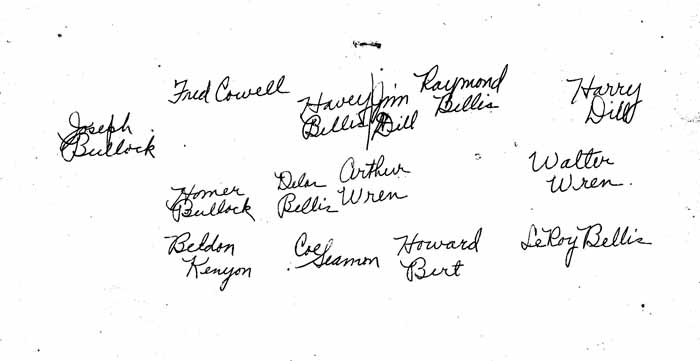 Fred Cowell
Raymond
Bellis
Harry
Dill
Havey
Bellis
Jim
Dill
Joseph
Bullock
Homer
Bullock
Delos
Bellis
Arthur
Wren
Walter
Wren.
Beldon
Kenyon
Coe
Seamon
Howard
Bert
LeRoy Bellis